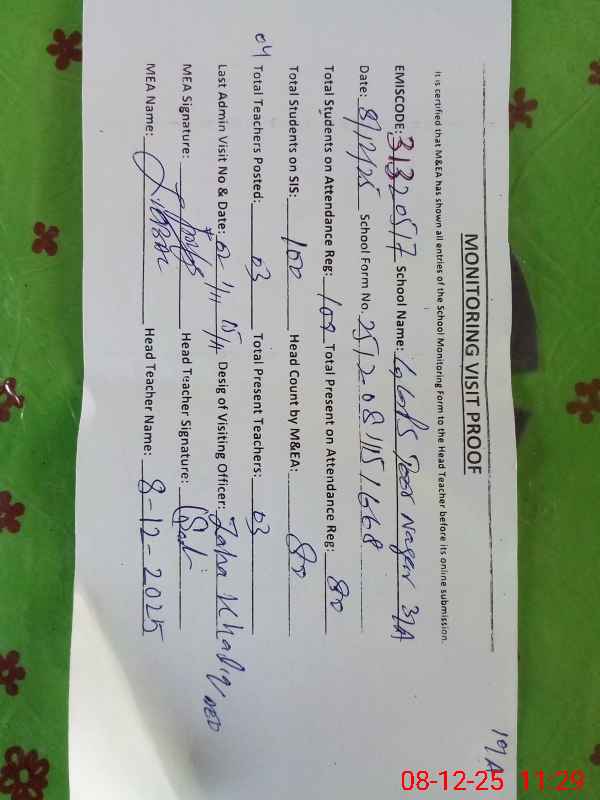 19/A
MONITORING VISIT PROOF
It is certified that M&EA has shown all entries of the School Monitoring Form to the Head Teacher before its online submission.
EMISCODE: 31320517 School Name: Nagar 31/A
Date: 8/12/25 School Form No. 2512081151668
Total Students on Attendance Reg: 100 Total Present on Attendance Reg: 80
Total Students on SIS: 100 Head Count by M&EA: 80
04 Total Teachers Posted: 03 Total Present Teachers: 03
Last Admin Visit No & Date: 02 Desig of Visiting Officer: Zaha Khaliq
MEA Signature: Head Teacher Signature:
MEA Name: Head Teacher Name: 8-12-2025
08-12-25 11:29